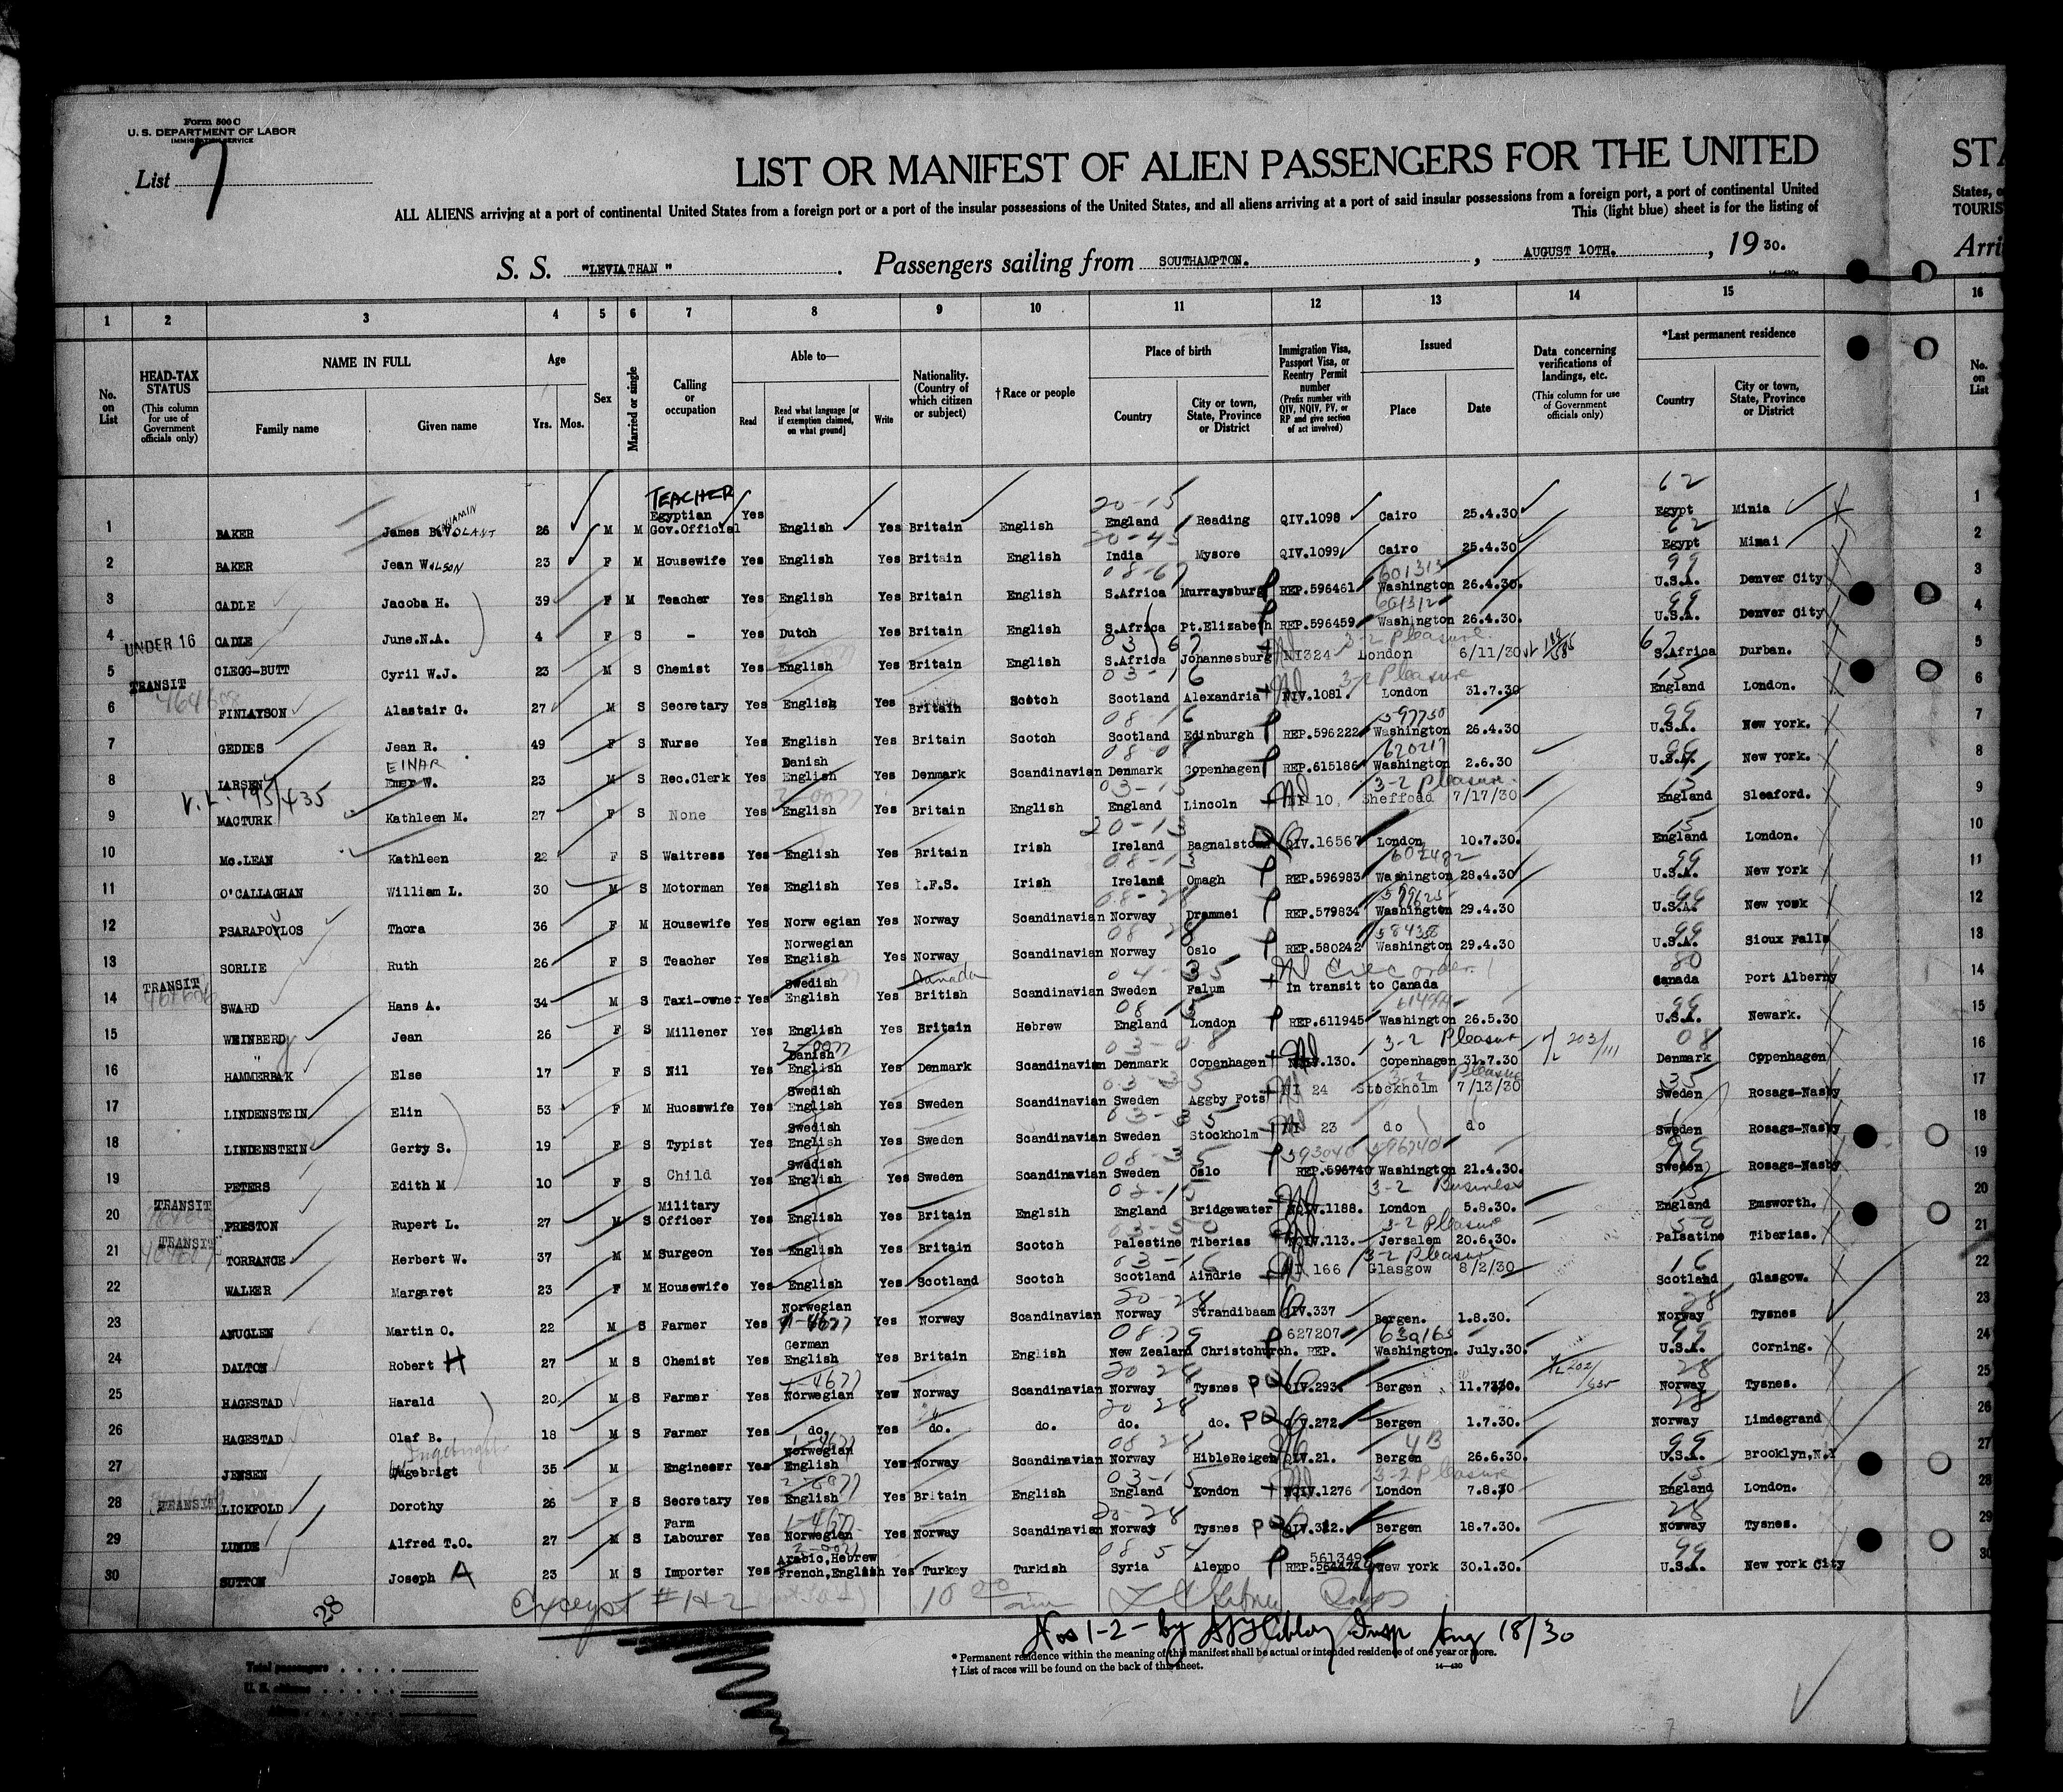 Form 500 C
U. S. DEPARTMENT OF LABOR
IMMIGRATION SERVICE
List 7
LIST OR MANIFEST OF ALIEN PASSENGERS FOR THE UNITED
ALL ALIENS arriving at a port of continental United States from a foreign port or a port of the insular possessions of the United States, and all aliens arriving at a port of said insular possessions from a foreign port, a port of continental United
This (light blue) sheet is for the listing of
S. S. "LEVIATHAN" . Passengers sailing from SOUTHAMPTON. , AUGUST 10TH. , 19 30.
1 2 3 4 5 6 7 8 9 10 11 12 13 14 15 16
No. on List
HEAD-TAX STATUS (This column for use of Government officials only)
NAME IN FULL Family name Given name
Age Yrs. Mos.
Sex
Married or single
Calling or occupation
Able to— Read Read what language [or if exemption claimed, on what ground] Write
Nationality. (Country of which citizen or subject)
†Race or people
Place of birth Country City or town, State, Province or District
Immigration Visa, Passport Visa, or Reentry Permit number (Prefix number with QIV, NQIV, PV, or RP and give section of act involved)
Issued Place Date
Data concerning verifications of landings, etc. (This column for use of Government officials only)
*Last permanent residence Country City or town, State, Province or District
No. on List
1 BAKER James B. 26 M M TEACHER Egyptian Gov.Official Yes English Yes Britain English 20-15 England Reading QIV.1098 Cairo 25.4.30 62 Egypt Minia 1
2 BAKER Jean WILSON 23 F M Housewife Yes English Yes Britain English 20-45 India Mysore QIV.1099 Cairo 25.4.30 62 Egypt Mimai 2
3 CADLE Jacoba H. 39 F M Teacher Yes English Yes Britain English 08-67 S.Africa Murraysburg REP.596461 601313 Washington 26.4.30. 99 U.S.A. Denver City 3
4 UNDER 16 CADLE June.N.A. 4 F S - Yes Dutch Yes Britain English S.Africa Pt.Elizabeth REP.596459 601312 Washington 26.4.30. 99 U.S.A. Denver City 4
5 TRANSIT CLEGG-BUTT Cyril W.J. 23 M S Chemist Yes English Yes Britain English 03 67 S.Africa Johannesburg NI324 3-2 Pleasure London 6/11/30 67 S.Africa Durban. 5
6 FINLAYSON Alastair G. 27 M S Secretary Yes English Yes Britain Scotch 03-16 Scotland Alexandria NIV.1081. 3-2 Pleasure London 31.7.30 15 England London. 6
7 GEDDES Jean R. 49 F S Nurse Yes English Yes Britain Scotch 08-16 Scotland Edinburgh REP.596222 597750 Washington 26.4.30 99 U.S.A. New York. 7
8 LARSEN EINAR W. 23 M S Rec.Clerk Yes Danish English Yes Denmark Scandinavian 08-08 Denmark Copenhagen REP.615186 620217 Washington 2.6.30 99 U.S.A. New York. 8
V.L. 195/435
9 MACTURK Kathleen M. 27 F S None Yes English Yes Britain English 03-15 England Lincoln NI 10, 3-2 Pleasure. Sheffoed 7/17/30 15 England Sleaford. 9
10 Mc.LEAN Kathleen 22 F S Waitress Yes English Yes Britain Irish 20-13 Ireland Bagnalstown QIV.16567 London 10.7.30. 15 England London. 10
11 O'CALLAGHAN William L. 30 M S Motorman Yes English Yes I.F.S. Irish 08-13 Ireland Omagh REP.596983 602482 Washington 28.4.30 99 U.S.A. New York 11
12 PSARAPOYLOS Thora 36 F M Housewife Yes Norw egian Yes Norway Scandinavian 08-28 Norway Drammei REP.579834 579625 Washington 29.4.30 99 U.S.A. New York 12
13 SORLIE Ruth 26 F S Teacher Yes Norwegian English Yes Norway Scandinavian 08 28 Norway Oslo REP.580242 58438 Washington 29.4.30 99 U.S.A. Sioux Falls 13
14 TRANSIT SWARD Hans A. 34 M S Taxi-owner Yes Swedish English Yes Canada British Scandinavian 04-35 Sweden Falum In transit to Canada 80 Canada Port Alberny 14
15 WEINBERD Jean 26 F S Millener Yes English Yes Britain Hebrew 08 15 England London REP.611945 Washington 26.5.30 99 U.S.A. Newark. 15
16 HAMMERBAK Else 17 F S Nil Yes Danish English Yes Denmark Scandinavian 03-08 Denmark Copenhagen NQIV.130. 3-2 Pleasure Copenhagen 31.7.30 203/111 08 Denmark Cppenhagen 16
17 LINDENSTEIN Elin 53 F M Huosewife Yes Swedish English Yes Sweden Scandinavian 03-35 Sweden Aggby Fots NI 24 3-2 Pleasure Stockholm 7/13/30 35 Sweden Rosags-Nasby 17
18 LINDENSTEIN Gerty S. 19 F S Typist Yes Swedish English Yes Sweden Scandinavian 03-35 Sweden Stockholm NI 23 do do Sweden Rosags-Nasby 18
19 PETERS Edith M 10 F S Child Yes Swedish English Yes Sweden Scandinavian 08-35 Sweden Oslo 593040 596740 REP.596740 Washington 21.4.30. 99 Sweden Rosags-Nasby 19
20 TRANSIT PRESTON Rupert L. 27 M S Military Officer Yes English Yes Britain Englsih 03-15 England Bridgewater NQIV.1188. 3-2 Business London 5.8.30. 15 England Emsworth. 20
21 TRANSIT TORRANCE Herbert W. 37 M M Surgeon Yes English Yes Britain Scotch 03-50 Palestine Tiberias NQIV.113. 3-2 Pleasure Jersalem 20.6.30. 50 Palsatine Tiberias. 21
22 WALKER Margaret 23 F M Housewife Yes English Yes Scotland Scotch 03-16 Scotland Aindrie NI 166 3-2 Pleasure Glasgow 8/2/30 16 Scotland Glasgow. 22
23 ANUGLEN Martin O. 22 M S Farmer Yes Norwegian Yes Norway Scandinavian 20-28 Norway Strandibaam QIV.337 Bergen. 1.8.30. 28 Norway Tysnes 23
24 DALTON Robert H 27 M S Chemist Yes German English Yes Britain English 08 79 New Zealand Christchurch. REP. 627207 630165 Washington. July.30. 99 U.S.A. Corning. 24
25 HAGESTAD Harald 20 M S Farmer Yes Norwegian Yew Norway Scandinavian 20 28 Norway Tysnes QIV.293. Bergen 11.7.30. 28 Norway Tysnes. 25
26 HAGESTAD Olaf B. 18 M S Farmer Yes do. Yes do. do. 20 28 do. do. QIV.272. Bergen 1.7.30. 28 Norway Limdegrand 26
27 JENSEN Ingebrigt 35 M Engineewr Yes Norwegian English Yew Norway Scandinavian 08 28 Norway HibleReigen QIV.21. 4B Bergen 26.6.30. 99 U.S.A. Brooklyn,N.Y 27
28 TRANSIT LICKFOLD Dorothy 26 F S Secretary Yes English Yes Britain English 03-15 England Kondon NQIV.1276 3-2 Pleasure London 7.8.30 15 England London. 28
29 LUNDE Alfred T.O. 27 M S Farm Labourer Yes Norwegian Yes Norway Scandinavian 20-28 Norway Tysnes QIV.322. Bergen 18.7.30. 28 Norway Tysnes. 29
30 SUTTON Joseph A 23 M S Importer Yes Arabic,Hebrew French,English Yes Turkey Turkish 08 54 Syria Aleppo REP. 561349 New york 30.1.30. 99 U.S.A. New york City 30
28
Except #1+2
Nos 1-2- by Insp Aug 18/30
* Permanent residence within the meaning of this manifest shall be actual or intended residence of one year or more.
† List of races will be found on the back of this sheet.
14—430
Total passengers
U. S. citizens
Aliens
STA
States, o
TOURIS
Arri